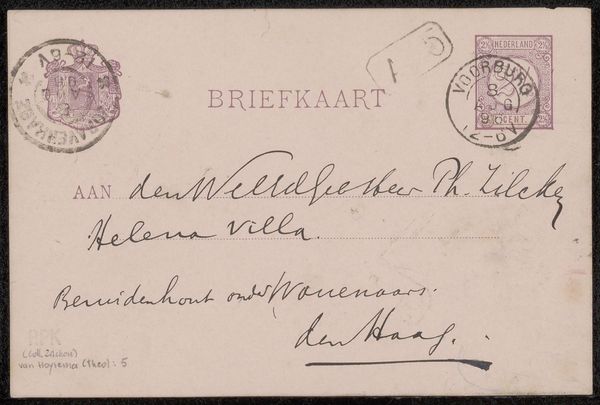 BRIEFKAART
NEDERLAND
2½ 2½
CENT.
VOORBURG
8
AUG
96
12-6V
AAN den WelEdelGeb. Heer Ph. Zilcken
Helena Villa.
Bezuidenhout onder Wassenaar.
den Haag.
RPK
(coll. Zilcken)
van Hoytema (Theo): 5